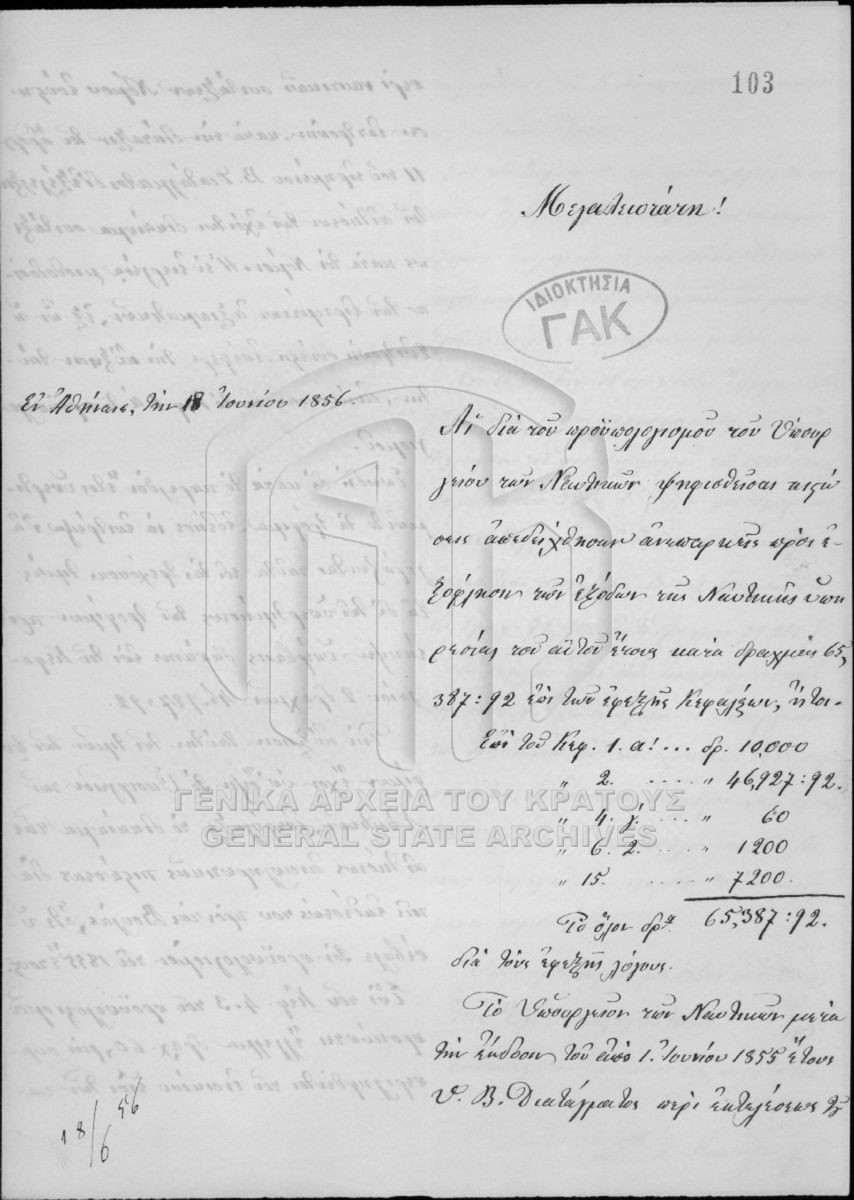 103
Μεγαλειοτάτη!
ΙΔΙΟΚΤΗΣΙΑ
ΓΑΚ
Ἐν Ἀθήναις, τὴν 18 Ἰουνίου 1856.
Αἱ διὰ τοῦ προϋπολογισμοῦ τοῦ Ὑπουρ
γείου τῶν Ναυτικῶν ψηφισθεῖσαι πιστώ
σεις ἀπεδείχθησαν ἀνεπαρκεῖς πρὸς ἐ-
ξόφλησιν τῶν ἐξόδων τῆς Ναυτικῆς ὑπη
ρεσίας τοῦ αὐτοῦ ἔτους κατὰ δραχμὰς 65,
387:92 ἐπὶ τῶν ἐφεξῆς Κεφαλαίων, ἤτοι-
Ἐπὶ τοῦ Κεφ. 1. α! ... δρ. 10,000
" 2. ..... " 46,927:92.
" 4. γ. .... " 60
" 6. 2. .... " 1200
" 15. ..... " 7200.
Τὸ ὅλον δρ. 65,387:92.
διὰ τοὺς ἐφεξῆς λόγους.
Τὸ Ὑπουργεῖον τῶν Ναυτικῶν μετὰ
τὴν ἔκδοσιν τοῦ ἀπὸ 1. Ἰουνίου 1855 ἔτους
Υ. Β. Διατάγματος περὶ ἐκτελέσεως τοῦ
18/6 56
ΓΕΝΙΚΑ ΑΡΧΕΙΑ ΤΟΥ ΚΡΑΤΟΥΣ
GENERAL STATE ARCHIVES